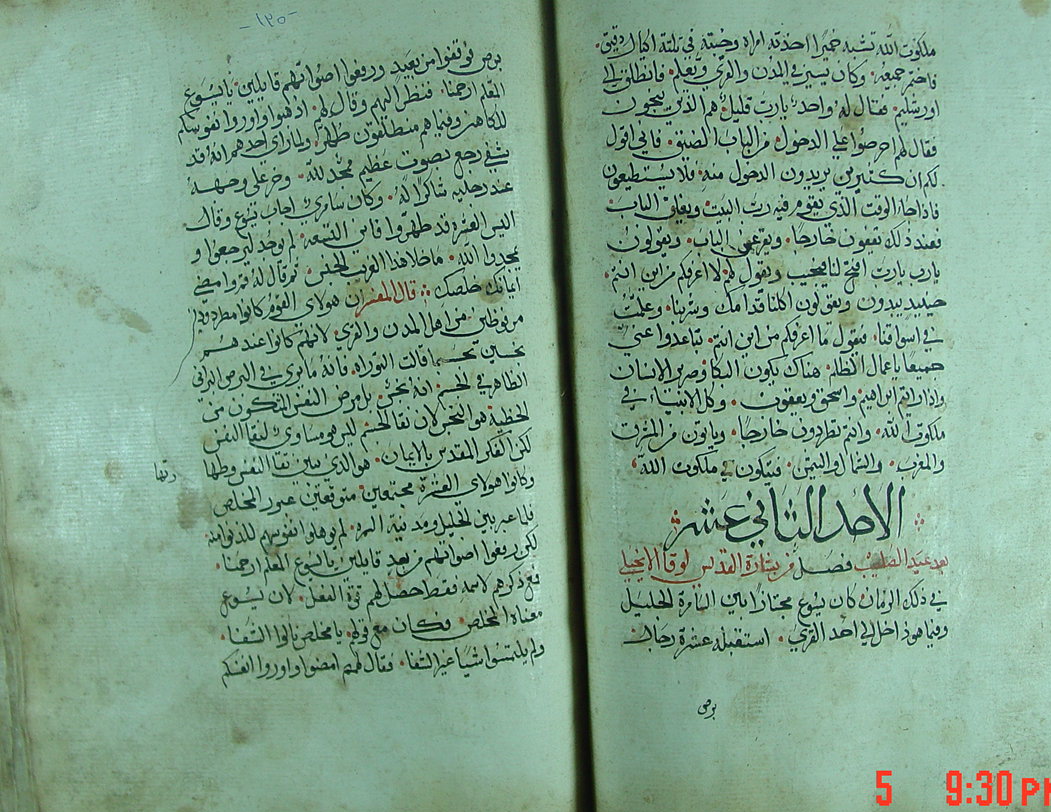 ملكوت الله تشبه خميرا اخذته امراة وخبته في تلتة اكيال دقيق
فاختمر جميعه وكان يسير في المدن والقري ويعلم فانطلق الي
اورشليم فقال له واحد يارب قليل هم الذين ينجون
فقال لهم احرصوا علي الدخول من الباب الضيق فاني اقول
لكم ان كتيرين يريدون الدخول منه فلا يستطيعون
فاذا جا الوقت الذي يقوم فيه رب البيت ويغلق الباب
فعند ذلك تقفون خارجا وتقرعون الباب وتقولون
يارب يارب افتح لنا فيجيب ويقول لكم لا اعرفكم من اين انتم
حينيد يبدون ويقولون اكلنا قدامك وشربنا وعلمت
في اسواقنا فيقول ما اعرفكم من اين انتم تباعدوا عني
جميعا يا عمال الظلم هناك يكون البكا وصرير الاسنان
واذا رايتم ابراهيم واسحق ويعقوب وكل الانبياء في
ملكوت الله وانتم تطردون خارجا وياتون من المشرق
والمغرب والشمال واليمن فيتكون في ملكوت الله
الاحد التاني عشر
بعد عيد الصليب فصل من بشارة القديس لوقا الانجيلي
في ذلك الزمان كان يسوع مجتازا بين السامرة الجليل
وفيما هو داخل الي احد القري استقبله عشرة رجال
برص
١٣٥
برص فوقفوا من بعيد ورفعوا اصواتهم قايلين يا يسوع
المعلم ارحمنا فنظر اليهم وقال لهم اذهبوا واوروا نفوسكم
للكاهن وفيما هم منطلقون طهروا ولما راي احدهم انه قد
شفي رجع بصوت عظيم يمجد لله وخر علي وجهه
عند رجليه شاكرا له وكان سامري اجاب يسوع وقال
اليس العشرة قد طهروا فاين التسعة لم يوجد ليرجعوا و
يمجدوا الله ما خلا هذا الغريب الجنس تم قال له قم وامضي
ايمانك خلصك قال المفسر ان هولاي القوم كانوا مطرودين
من اهل المدن والقري لانهم كانوا عندهم
نجسين كما قالت التوراه فانه ما يري في البرص البراني
الظاهر في الجسم انه نجس بل مرض النفس المتكون من
الخطية هو النجس لان نقا الجسم ليس هو مساوي لنقا النفس
لكن الفكر المقدس بالايمان هو الذي يبين نقا النفس وطهارتها
وكانوا هولاي العشرة مجتمعين متوقعين عبور المخلص
فلما عبر بين الجليل ومدينة السمره لم يوهلوا نفوسهم للدنو منه
لكن رفعوا اصواتهم من بعد قايلين يا يسوع المعلم ارحمنا
فمع ذكرهم لاسمه فقط حصل لهم قوة الفعل لان يسوع
معناه المخلص فكان مع قولهم يا مخلص نالوا الشفا
ولم يلتمسوا شيا غير الشفا فقال لهم امضوا واوروا انفسكم
5 9:30 PM